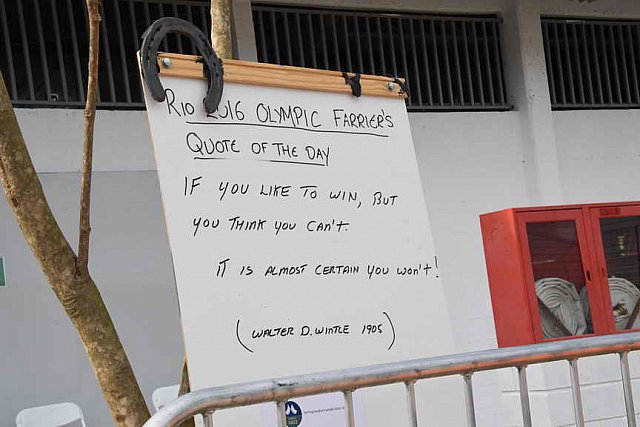 Rio 2016 OLYMPIC FARRIER'S
QUOTE OF THE DAY
IF YOU LIKE TO WIN, BUT
YOU THINK YOU CAN'T.
IT IS ALMOST CERTAIN YOU WON'T!
(WALTER D. WINTLE 1905)